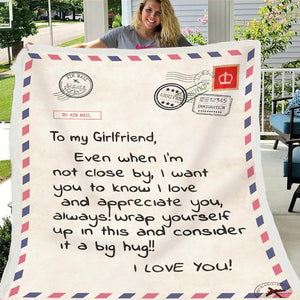 BY AIR MAIL
12345
To my Girlfriend,
Even when i'm
not close by, I want
you to know I love
and appreciate you,
always! wrap yourself
up in this and consider
it a big hug!!
I LOVE YOU!